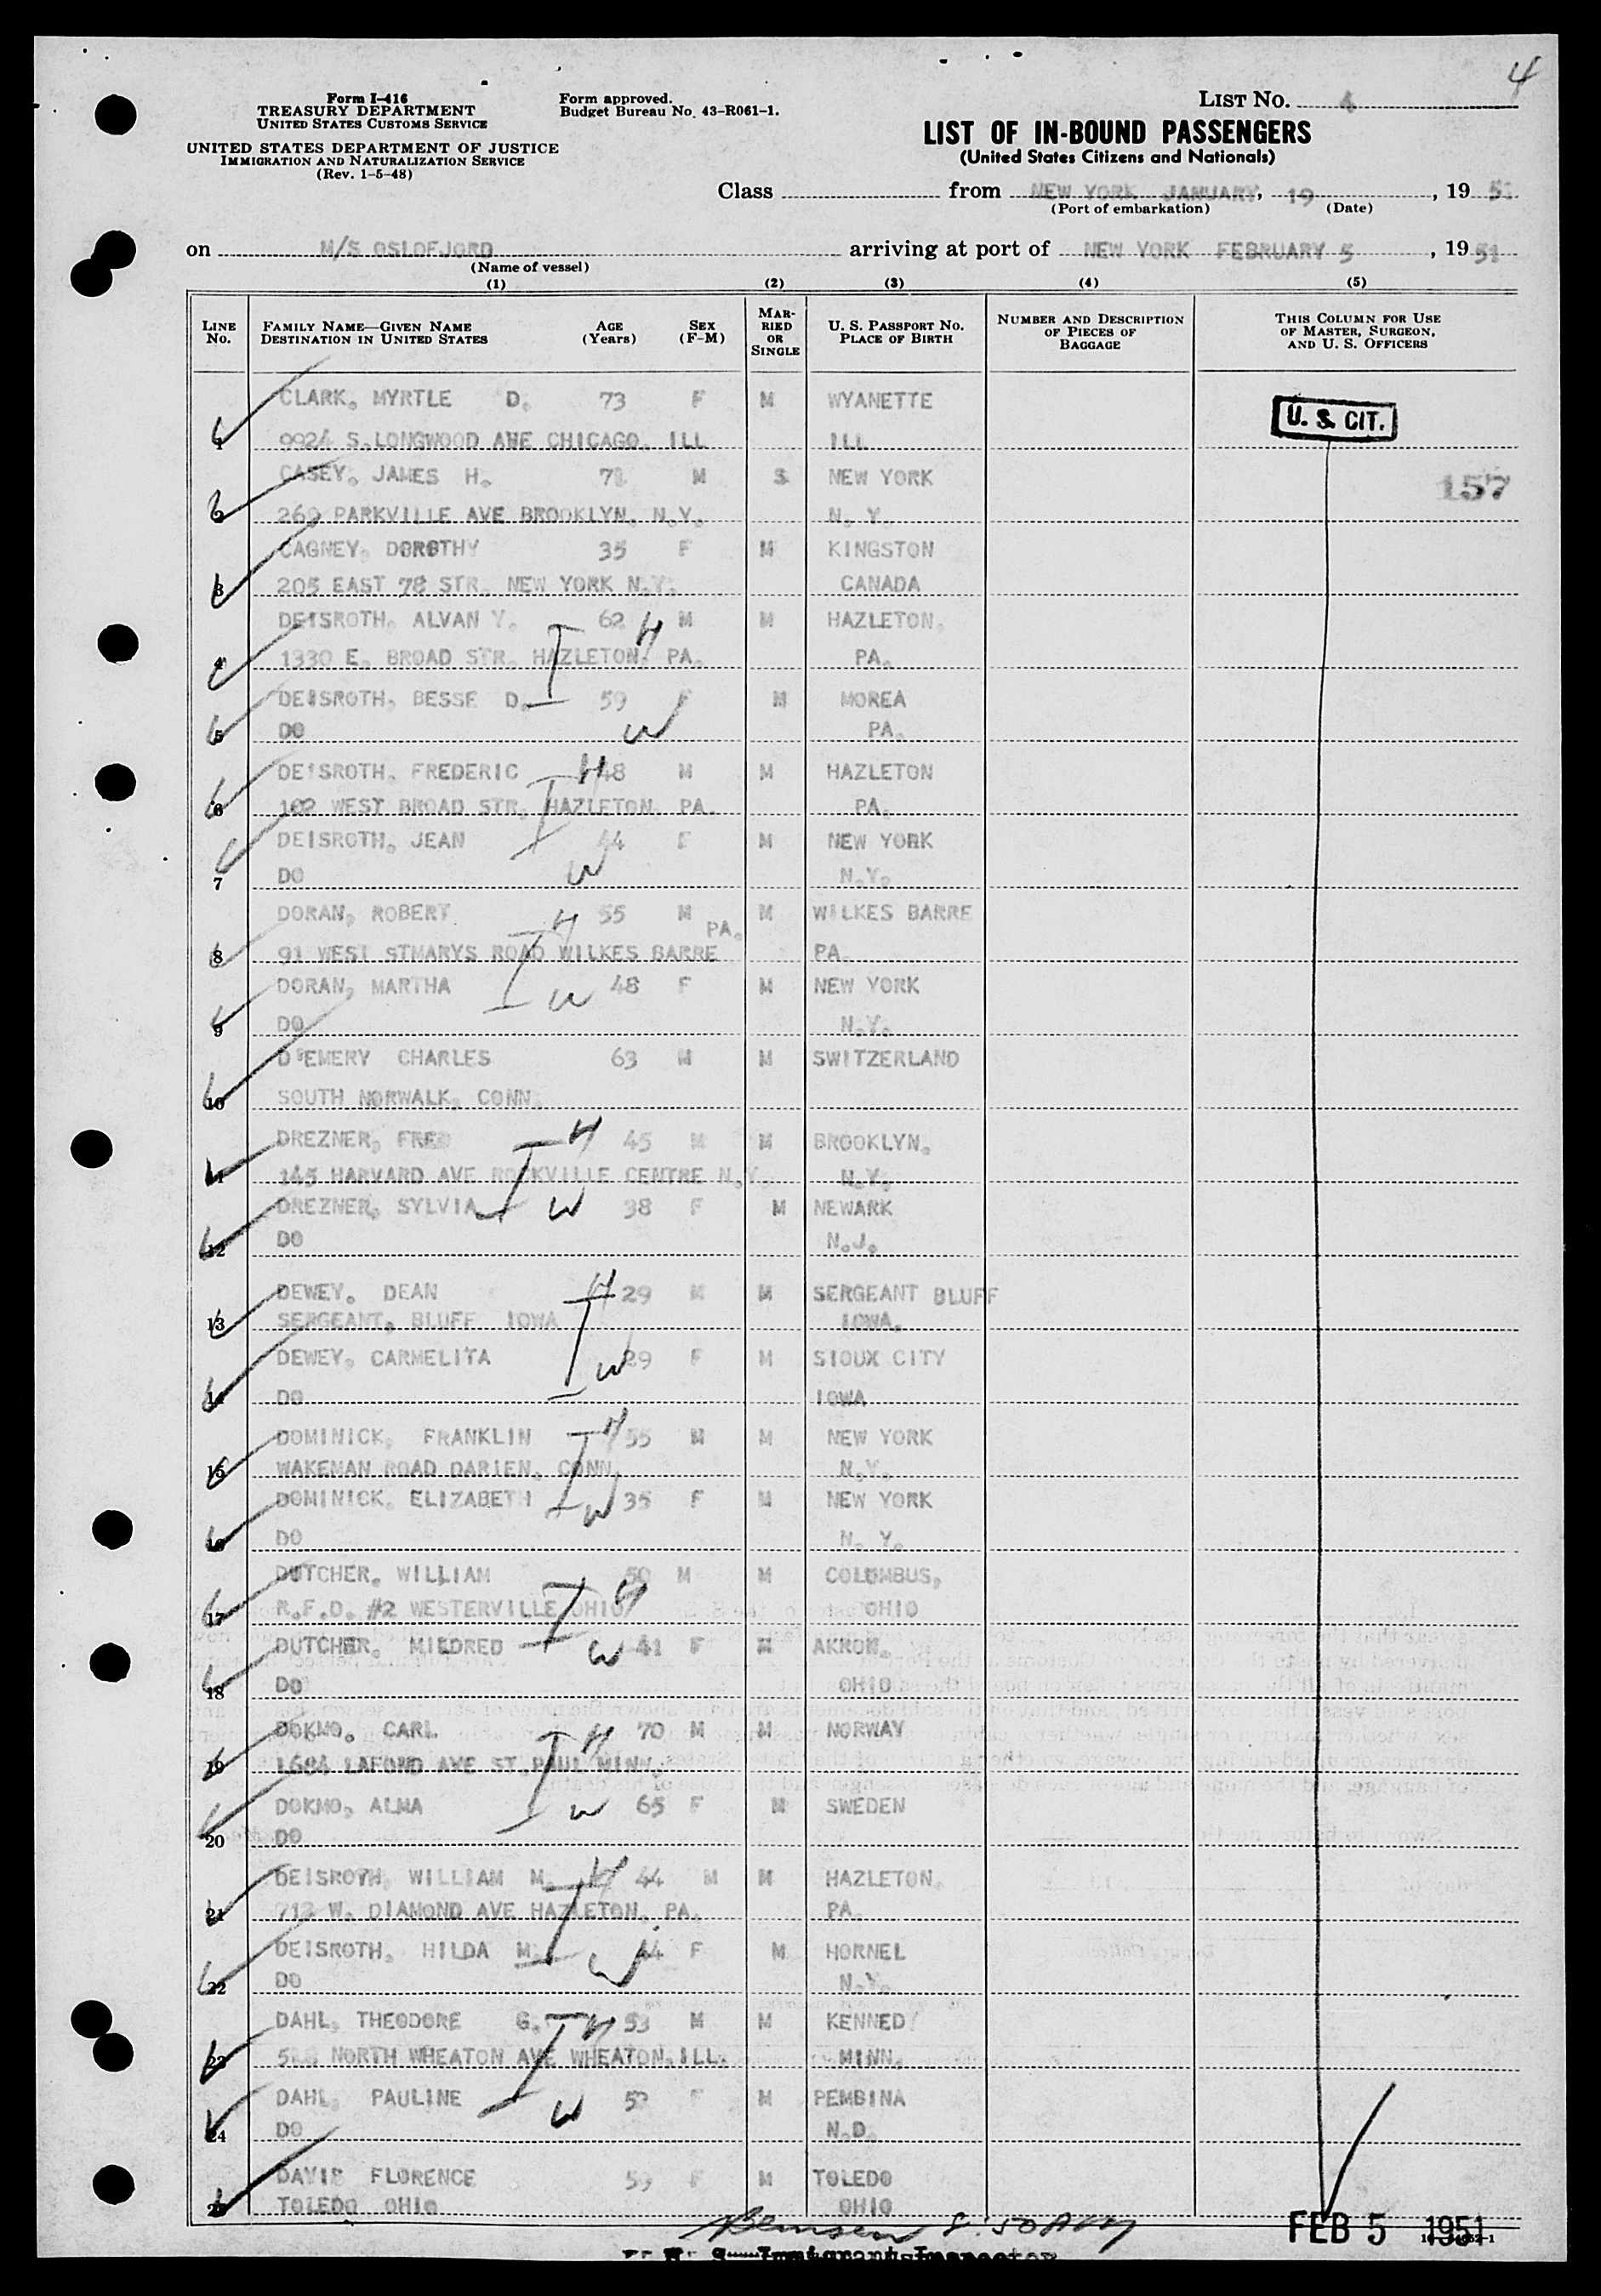 4
Form I-416
TREASURY DEPARTMENT
UNITED STATES CUSTOMS SERVICE
Form approved.
Budget Bureau No. 43-R061-1.
LIST NO. 4
UNITED STATES DEPARTMENT OF JUSTICE
IMMIGRATION AND NATURALIZATION SERVICE
(Rev. 1-5-48)
LIST OF IN-BOUND PASSENGERS
(United States Citizens and Nationals)
Class from NEW YORK JANUARY, 19, 19 51
(Port of embarkation) (Date)
on M/S OSLOFJORD arriving at port of NEW YORK FEBRUARY 5, 19 51
(Name of vessel)
(1) (2) (3) (4) (5)
LINE No. FAMILY NAME—GIVEN NAME DESTINATION IN UNITED STATES AGE (Years) SEX (F-M) MARRIED OR SINGLE U. S. PASSPORT NO. PLACE OF BIRTH NUMBER AND DESCRIPTION OF PIECES OF BAGGAGE THIS COLUMN FOR USE OF MASTER, SURGEON, AND U. S. OFFICERS
CLARK, MYRTLE D. 73 F M WYANETTE U. S. CIT.
1 9924 S.LONGWOOD AVE CHICAGO. ILL ILL
CASEY, JAMES H. M S NEW YORK 157
2 269 PARKVILLE AVE BROOKLYN. N.Y. N. Y.
CAGNEY, DOROTHY 35 F M KINGSTON
3 205 EAST 78 STR. NEW YORK N.Y. CANADA
DEISROTH, ALVAN Y. 62 H M M HAZLETON.
4 1330 E. BROAD STR. HAZLETON. PA. PA.
DEISROTH, BESSE D. 59 F M MOREA
5 DO W PA.
DEISROTH, FREDERIC H 48 M M HAZLETON
6 102 WEST BROAD STR. HAZLETON. PA. PA.
DEISROTH, JEAN 44 F M NEW YORK
7 DO W N.Y.
DORAN, ROBERT H 55 M M WILKES BARRE
PA.
8 91 WEST STMARYS ROAD WILKES BARRE PA.
DORAN, MARTHA W 48 F M NEW YORK
9 DO N.Y.
D'EMERY CHARLES 63 M M SWITZERLAND
10 SOUTH NORWALK, CONN.
DREZNER, FRED H 45 M M BROOKLYN.
11 145 HARVARD AVE ROCKVILLE CENTRE N.Y. N.Y.
DREZNER, SYLVIA W 38 F M NEWARK
12 DO N.J.
DEWEY. DEAN H 29 M M SERGEANT BLUFF
13 SERGEANT, BLUFF IOWA IOWA.
DEWEY, CARMELITA W 29 F M SIOUX CITY
14 DO IOWA
DOMINICK, FRANKLIN H 55 M M NEW YORK
15 WAKEMAN ROAD DARIEN, CONN. N.Y.
DOMINICK, ELIZABETH W 35 F M NEW YORK
16 DO N. Y.
DUTCHER, WILLIAM 50 M M COLUMBUS,
17 R.F.D. #2 WESTERVILLE OHIO H OHIO
DUTCHER, MILDRED W 41 F M AKRON.
18 DO OHIO
DOKMO, CARL H 70 M M NORWAY
19 1684 LAFOND AVE ST.PAUL MINN.
DOKMO, ALMA W 65 F M SWEDEN
20 DO
DEISROTH, WILLIAM M. H 44 M M HAZLETON.
21 712 W. DIAMOND AVE HAZLETON, PA. PA.
DEISROTH, HILDA M. W 44 F M HORNEL
22 DO N.Y.
DAHL, THEODORE G. H 53 M M KENNEDY
23 NORTH WHEATON AVE WHEATON.ILL. MINN.
DAHL, PAULINE W F M PEMBINA
24 DO N.D.
DAVIS FLORENCE 59 F M TOLEDO
25 TOLEDO OHIO OHIO
8:50 AM
FEB 5 1951
U. S. Immigrant Inspector